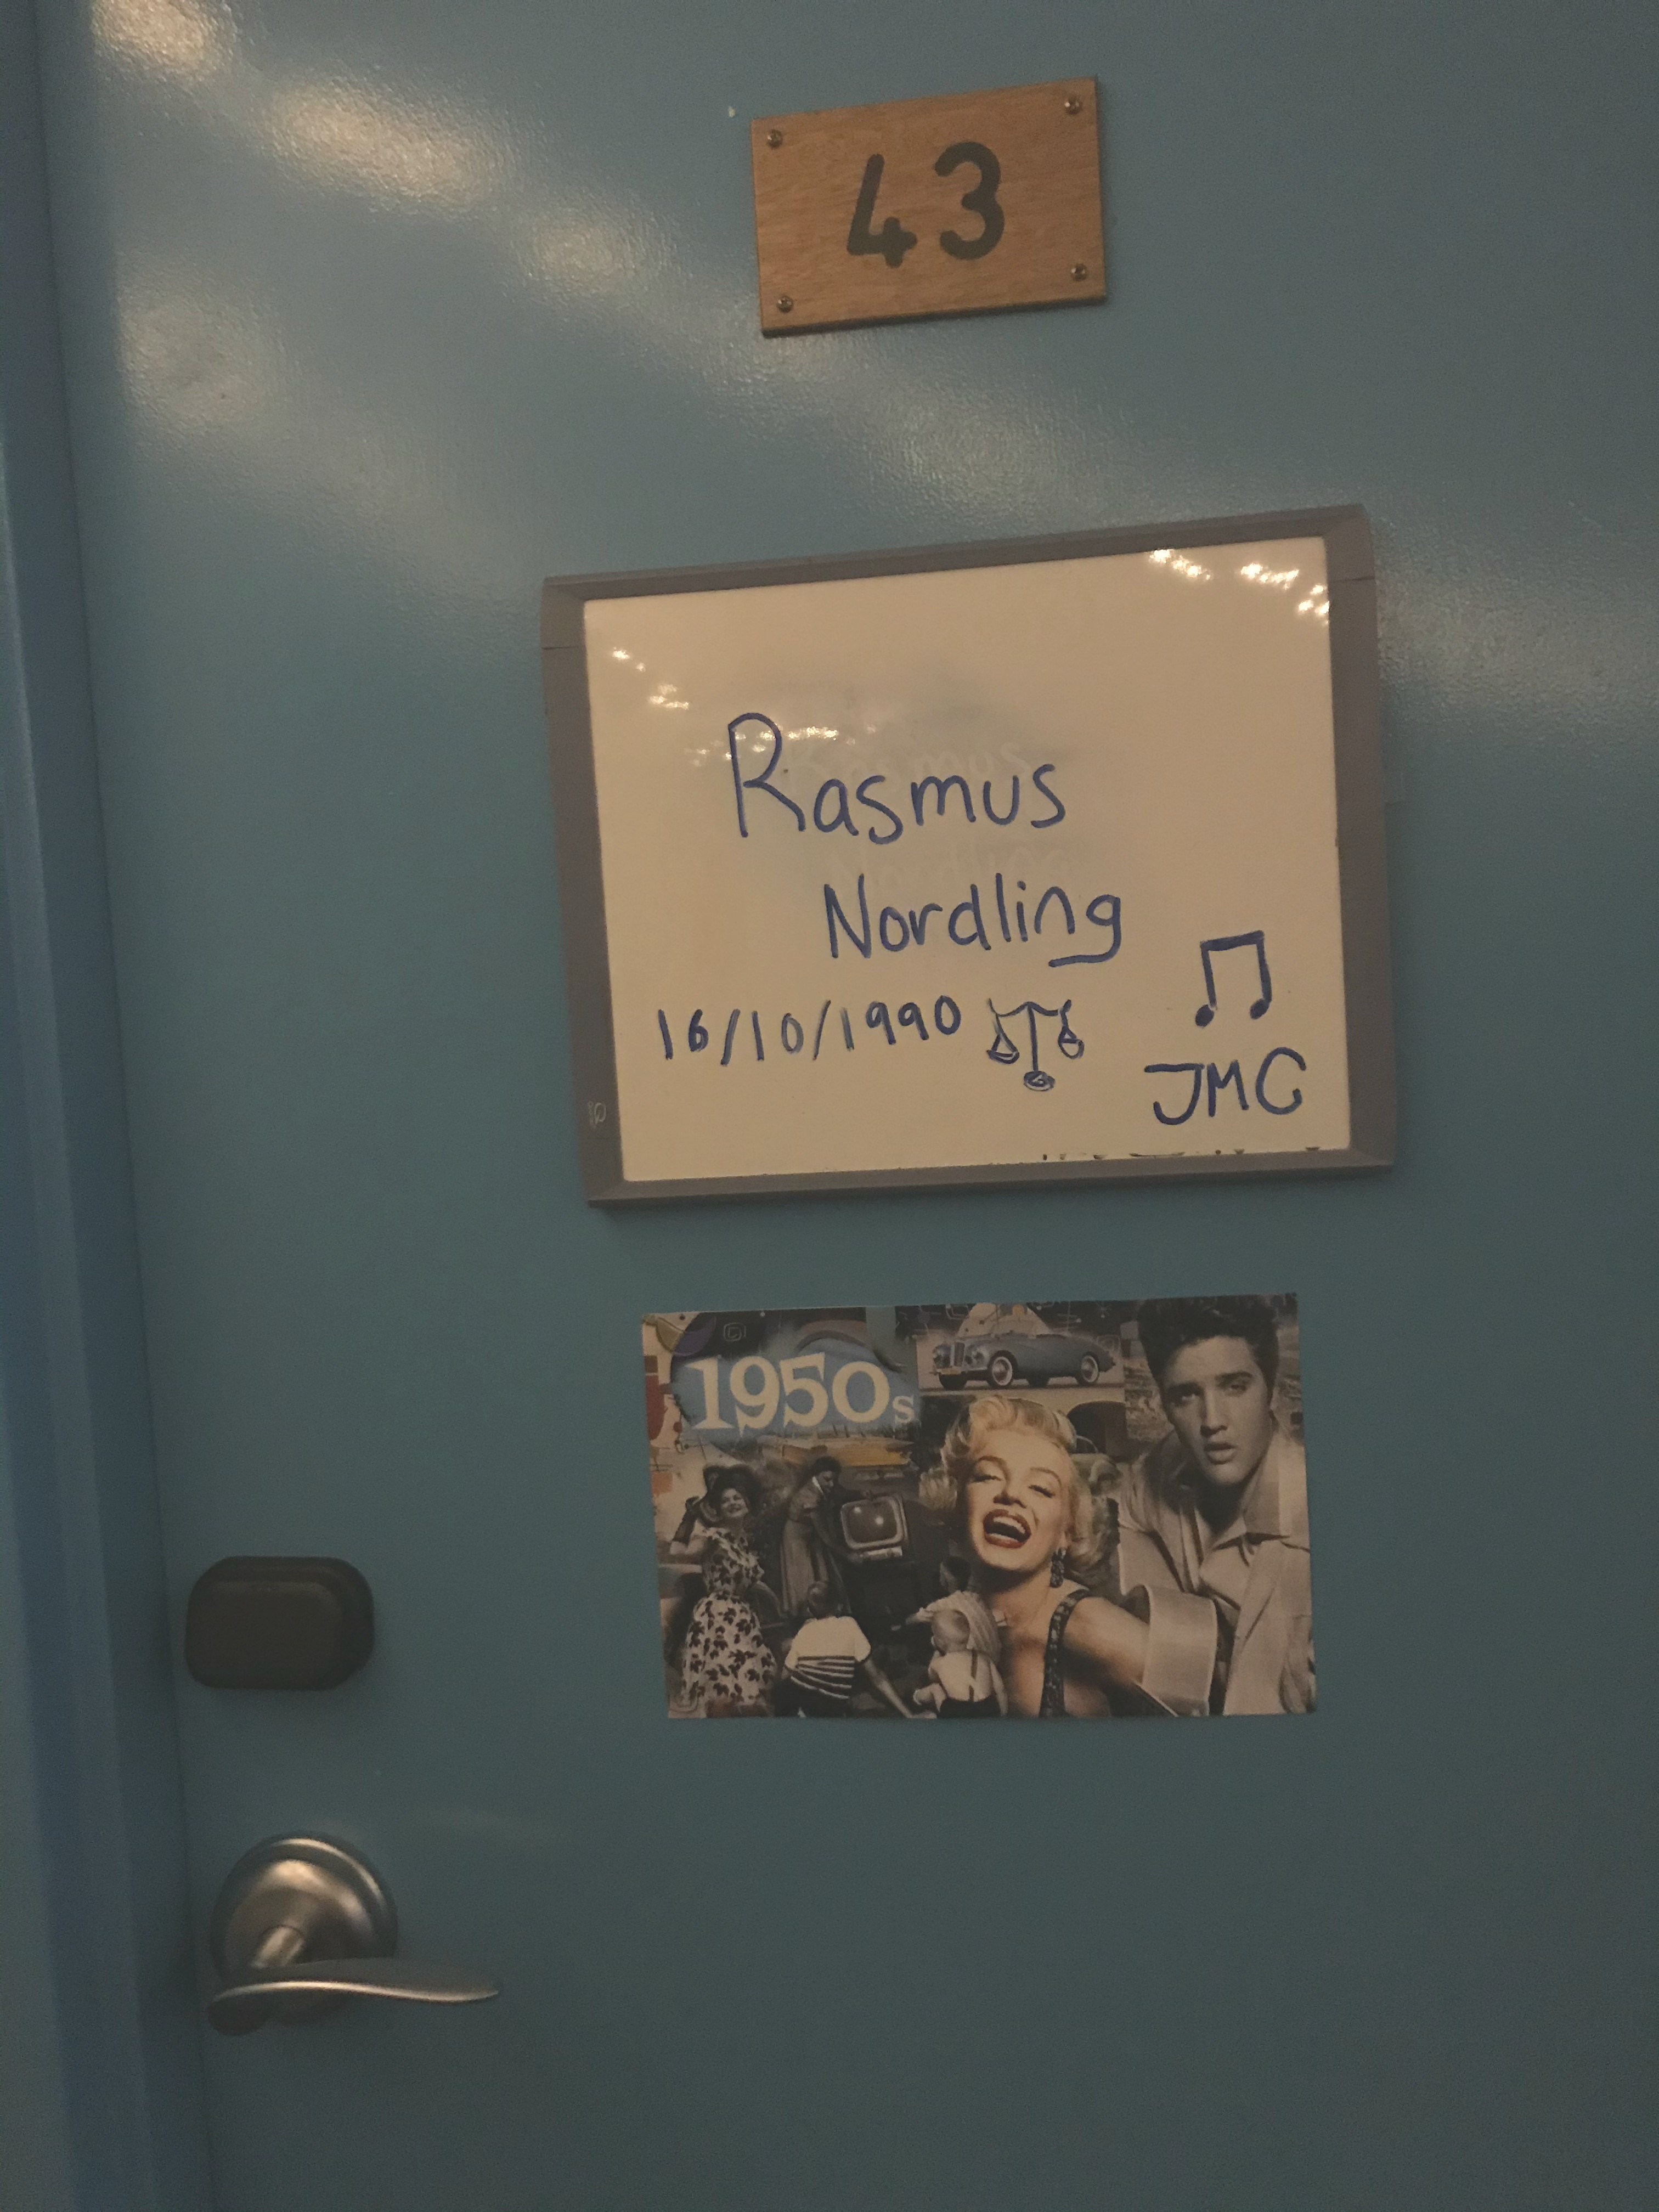 43
Rasmus
Nordling
16/10/1990
JMC
1950s